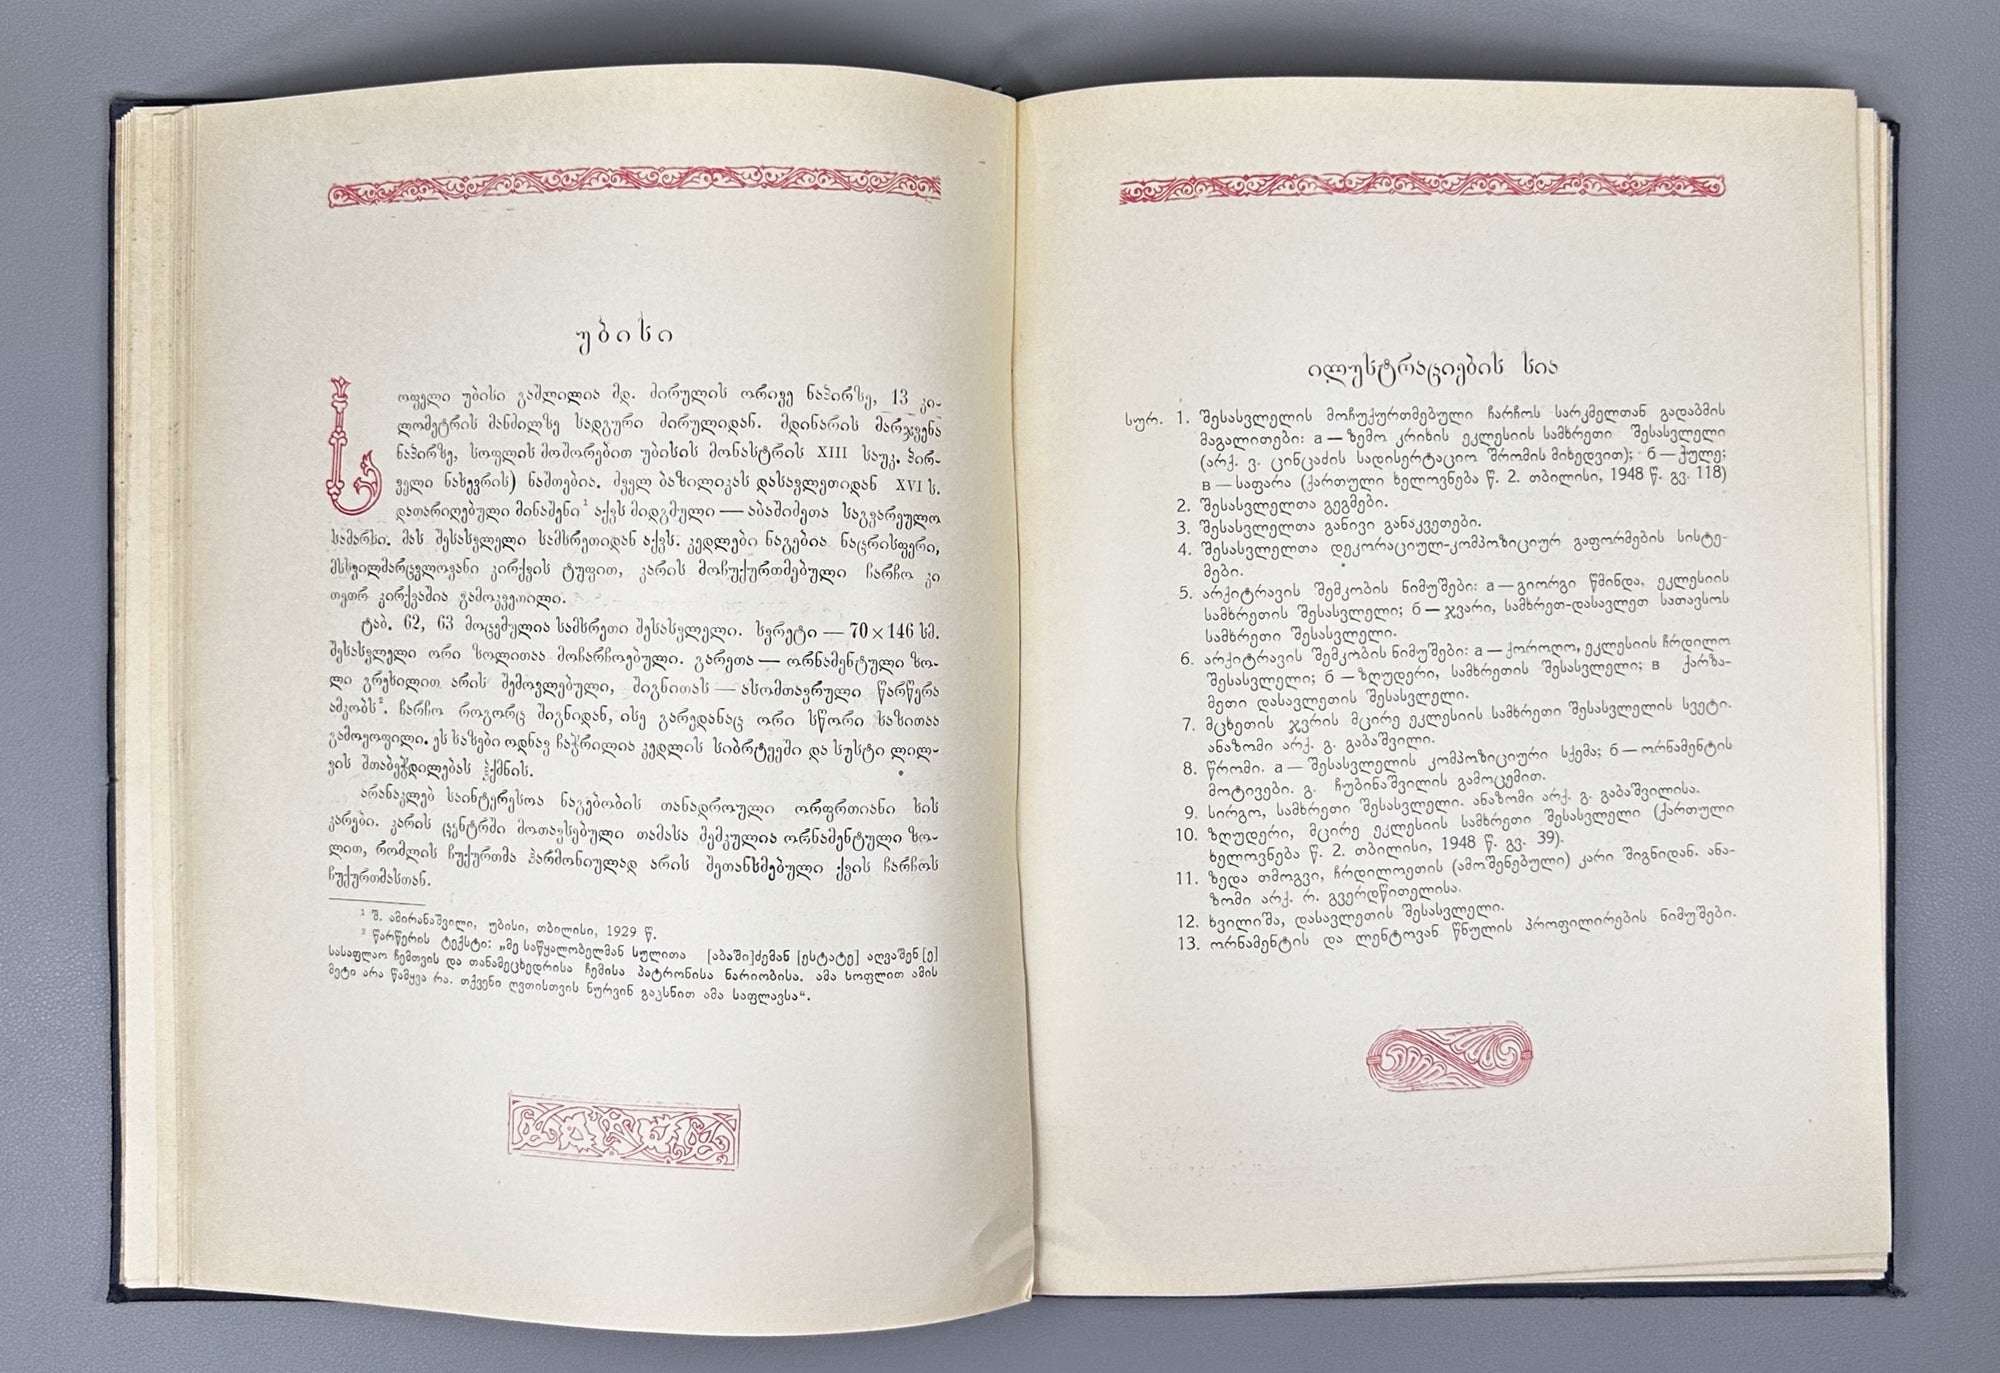 უბისი
სოფელი უბისი გაშლილია მდ. ძირულის ორივე ნაპირზე, 13 კი-
ლომეტრის მანძილზე სადგური ძირულიდან. მდინარის მარჯვენა
ნაპირზე, სოფლის მოშორებით უბისის მონასტრის XIII საუკ. პირ-
ველი ნახევრის) ნაშთებია. ძველ ბაზილიკას დასავლეთიდან XVI ს.
დათარიღებული მინაშენი¹ აქვს მიდგმული — აბაშიძეთა საგვარეულო
სამარხი. მას შესასვლელი სამხრეთიდან აქვს. კედლები ნაგებია ნაცრისფერი,
მსხვილმარცვლოვანი კირქვის ტუფით, კარის მოჩუქურთმებული ჩარჩო კი
თეთრ კირქვაშია გამოკვეთილი.
ტაბ. 62, 63 მოცემულია სამხრეთი შესასვლელი. ხვრეტი — 70×146 სმ.
შესასვლელი ორი ზოლითაა მოჩარჩოებული. გარეთა — ორნამენტული ზო-
ლი გრეხილით არის შემოვლებული, შიგნითას — ასომთავრული წარწერა
ამკობს². ჩარჩო როგორც შიგნიდან, ისე გარედანაც ორი სწორი ხაზითაა
გამოყოფილი. ეს ხაზები ოდნავ ჩაჭრილია კედლის სიბრტყეში და სუსტი ლილ-
ვის შთაბეჭდილებას ჰქმნის.
არანაკლებ საინტერესოა ნაგებობის თანადროული ორფრთიანი ხის
კარები. კარის ცენტრში მოთავსებული თამასა შემკულია ორნამენტული ზო-
ლით, რომლის ჩუქურთმა ჰარმონიულად არის შეთანხმებული ქვის ჩარჩოს
ჩუქურთმასთან.
¹ შ. ამირანაშვილი, უბისი, თბილისი, 1929 წ.
² წარწერის ტექსტი: „მე საწყალობელმან სულითა [აბაში]ძემან [ესტატე] აღვაშენ[ე]
სასაფლაო ჩემთვის და თანამეცხედრისა ჩემისა პატრონისა ნარიობისა. ამა სოფლით ამის
მეტი არა წამყვა რა. თქვენი ღვთისთვის ნურვინ გაკსნით ამა საფლავსა“.
ილუსტრაციების სია
სურ. 1. შესასვლელის მოჩუქურთმებული ჩარჩოს სარკმელთან გადაბმის
მაგალითები: а — ზემო კრიხის ეკლესიის სამხრეთი შესასვლელი
(არქ. ვ. ცინცაძის სადისერტაციო შრომის მიხედვით); б — ქულე;
в — საფარა (ქართული ხელოვნება წ. 2. თბილისი, 1948 წ. გვ. 118)
2. შესასვლელთა გეგმები.
3. შესასვლელთა განივი განაკვეთები.
4. შესასვლელთა დეკორაციულ-კომპოზიციურ გაფორმების სისტე-
მები.
5. არქიტრავის შემკობის ნიმუშები: а — გიორგი წმინდა, ეკლესიის
სამხრეთის შესასვლელი; б — ჯვარი, სამხრეთ-დასავლეთ სათავსოს
სამხრეთი შესასვლელი.
6. არქიტრავის შემკობის ნიმუშები: а — ქოროღო, ეკლესიის ჩრდილო
შესასვლელი; б — ზღუდერი, სამხრეთის შესასვლელი; в ქარზა-
მეთი დასავლეთის შესასვლელი.
7. მცხეთის ჯვრის მცირე ეკლესიის სამხრეთი შესასვლელის სვეტი.
ანაზომი არქ. გ. გაბაშვილი.
8. წრომი. а — შესასვლელის კომპოზიციური სქემა; б — ორნამენტის
მოტივები. გ. ჩუბინაშვილის გამოცემით.
9. სირგო, სამხრეთი შესასვლელი. ანაზომი არქ. გ. გაბაშვილისა.
10. ზღუდერი, მცირე ეკლესიის სამხრეთი შესასვლელი (ქართული
ხელოვნება წ. 2. თბილისი, 1948 წ. გვ. 39).
11. ზედა თმოგვი, ჩრდილოეთის (ამოშენებული) კარი შიგნიდან. ანა-
ზომი არქ. რ. გვერდწითელისა.
12. ხვილიშა, დასავლეთის შესასვლელი.
13. ორნამენტის და ლენტოვან წნულის პროფილირების ნიმუშები.